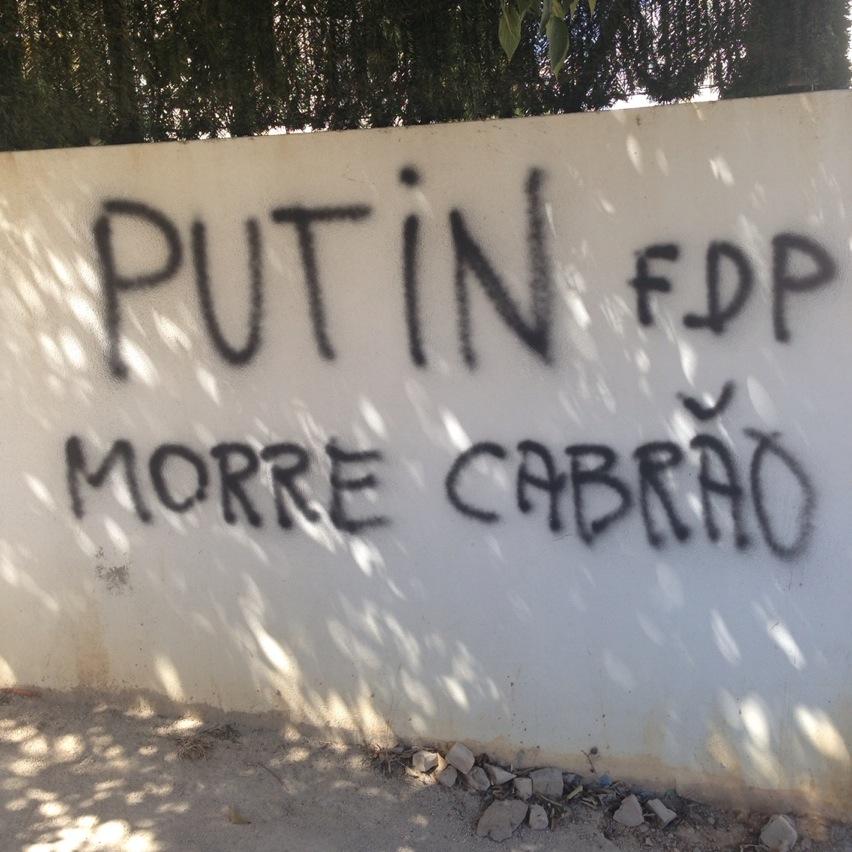 PUTiN FDP
MORRE CABRÃO